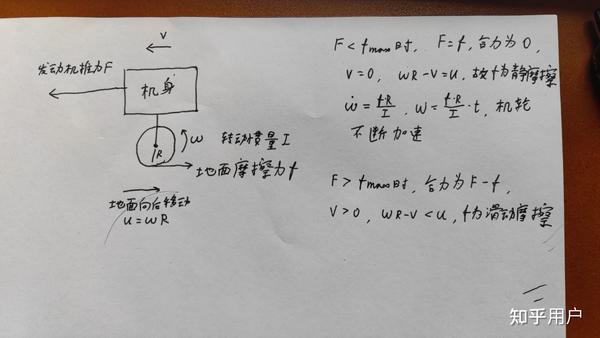 V
发动机推力F
机身
R
ω 转动惯量I
地面摩擦力f
地面向后移动
u=ωR
F<fmax时, F=f, 合力为0,
V=0, ωR-V=u, 故f为静摩擦
ω̇=f·R/I, ω=f·R/I·t, 机轮
不断加速
F>fmax时, 合力为F-f,
V>0, ωR-V<u, f为滑动摩擦
知乎用户